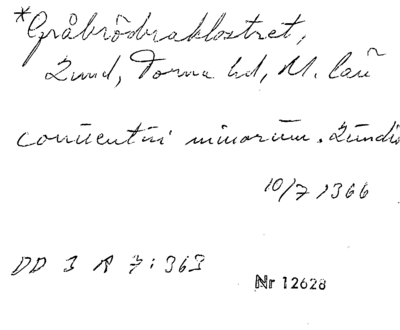 *Gråbrödraklostret,
Lund, Torna hd, M. län
conuentui minorum. Lundis
10/7 1366
DD 3 R 7:363
Nr 12628